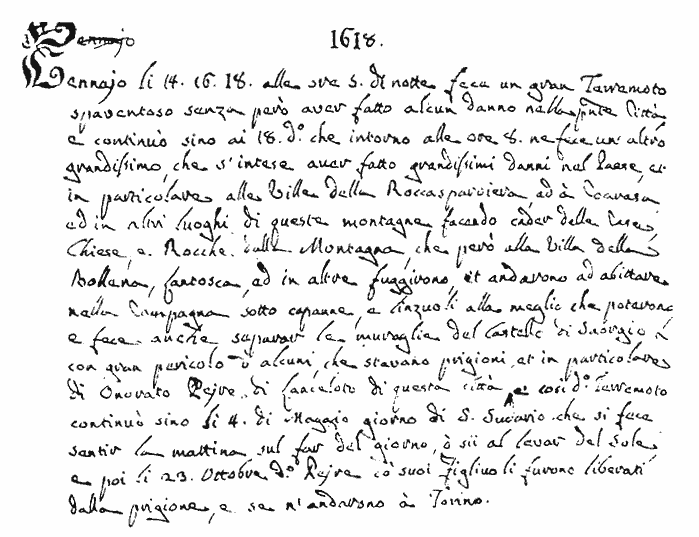 Gennajo 1618.
Gennajo li 14. 16. 18. alle ore 5. di notte fece un gran Terremoto
spaventoso senza però aver fatto alcun danno nella pnte Città
e continuò sino ai 18. do. che intorno alle ore 8. ne fece un' altro
grandissimo, che s'intese aver fatto grandissimi danni nel Paese, et
in particolare alle Ville della Roccasparviera, ad à Coarasa
ed in altri luoghi di queste montagne facendo cader delle Case,
Chiese, e Rocche dalla Montagna, che però alla Villa della
Bollena, Lantosca, ad in altre fuggirono, et andarono ad abittare
nella Campagna sotto capanne, e linzuoli alla meglio che potevano
e fece anche separar le muraglie del Castello di Saorgio
con gran pericolo d'alcuni, che stavano prigioni, et in particolare
di Onorato Pejre di Lanceloto di questa città, e così do. Terremoto
continuò sino li 4. di Maggio giorno di S. Sudario che si fece
sentir la mattina sul far del giorno, ò sii al levar del Sole
e poi li 23. Ottobre do. Pejre cò suoi figliuoli furono liberati
dalla prigione, e se n'andarono à Torino.